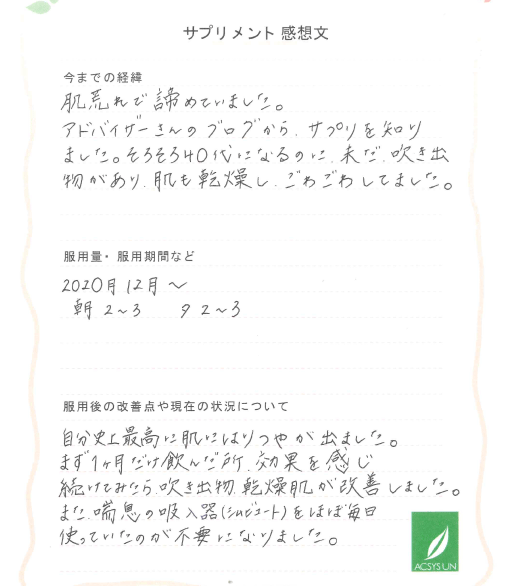 サプリメント 感想文
今までの経緯
肌荒れで諦めていました。
アドバイザーさんのブログから、サプリを知り
ました。そろそろ40代になるのに、未だ、吹き出
物があり、肌も乾燥し、ごわごわしてました。
服用量・服用期間など
2020月12月〜
朝 2〜3 夕 2〜3
服用後の改善点や現在の状況について
自分史上最高に肌にはりつやが出ました。
まず1ヶ月だけ飲んだ所、効果を感じ
続けてみたら、吹き出物、乾燥肌が改善しました。
また、喘息の吸入器(シムビコート)をほぼ毎日
使っていたのが不要になりました。
ACSYSUN